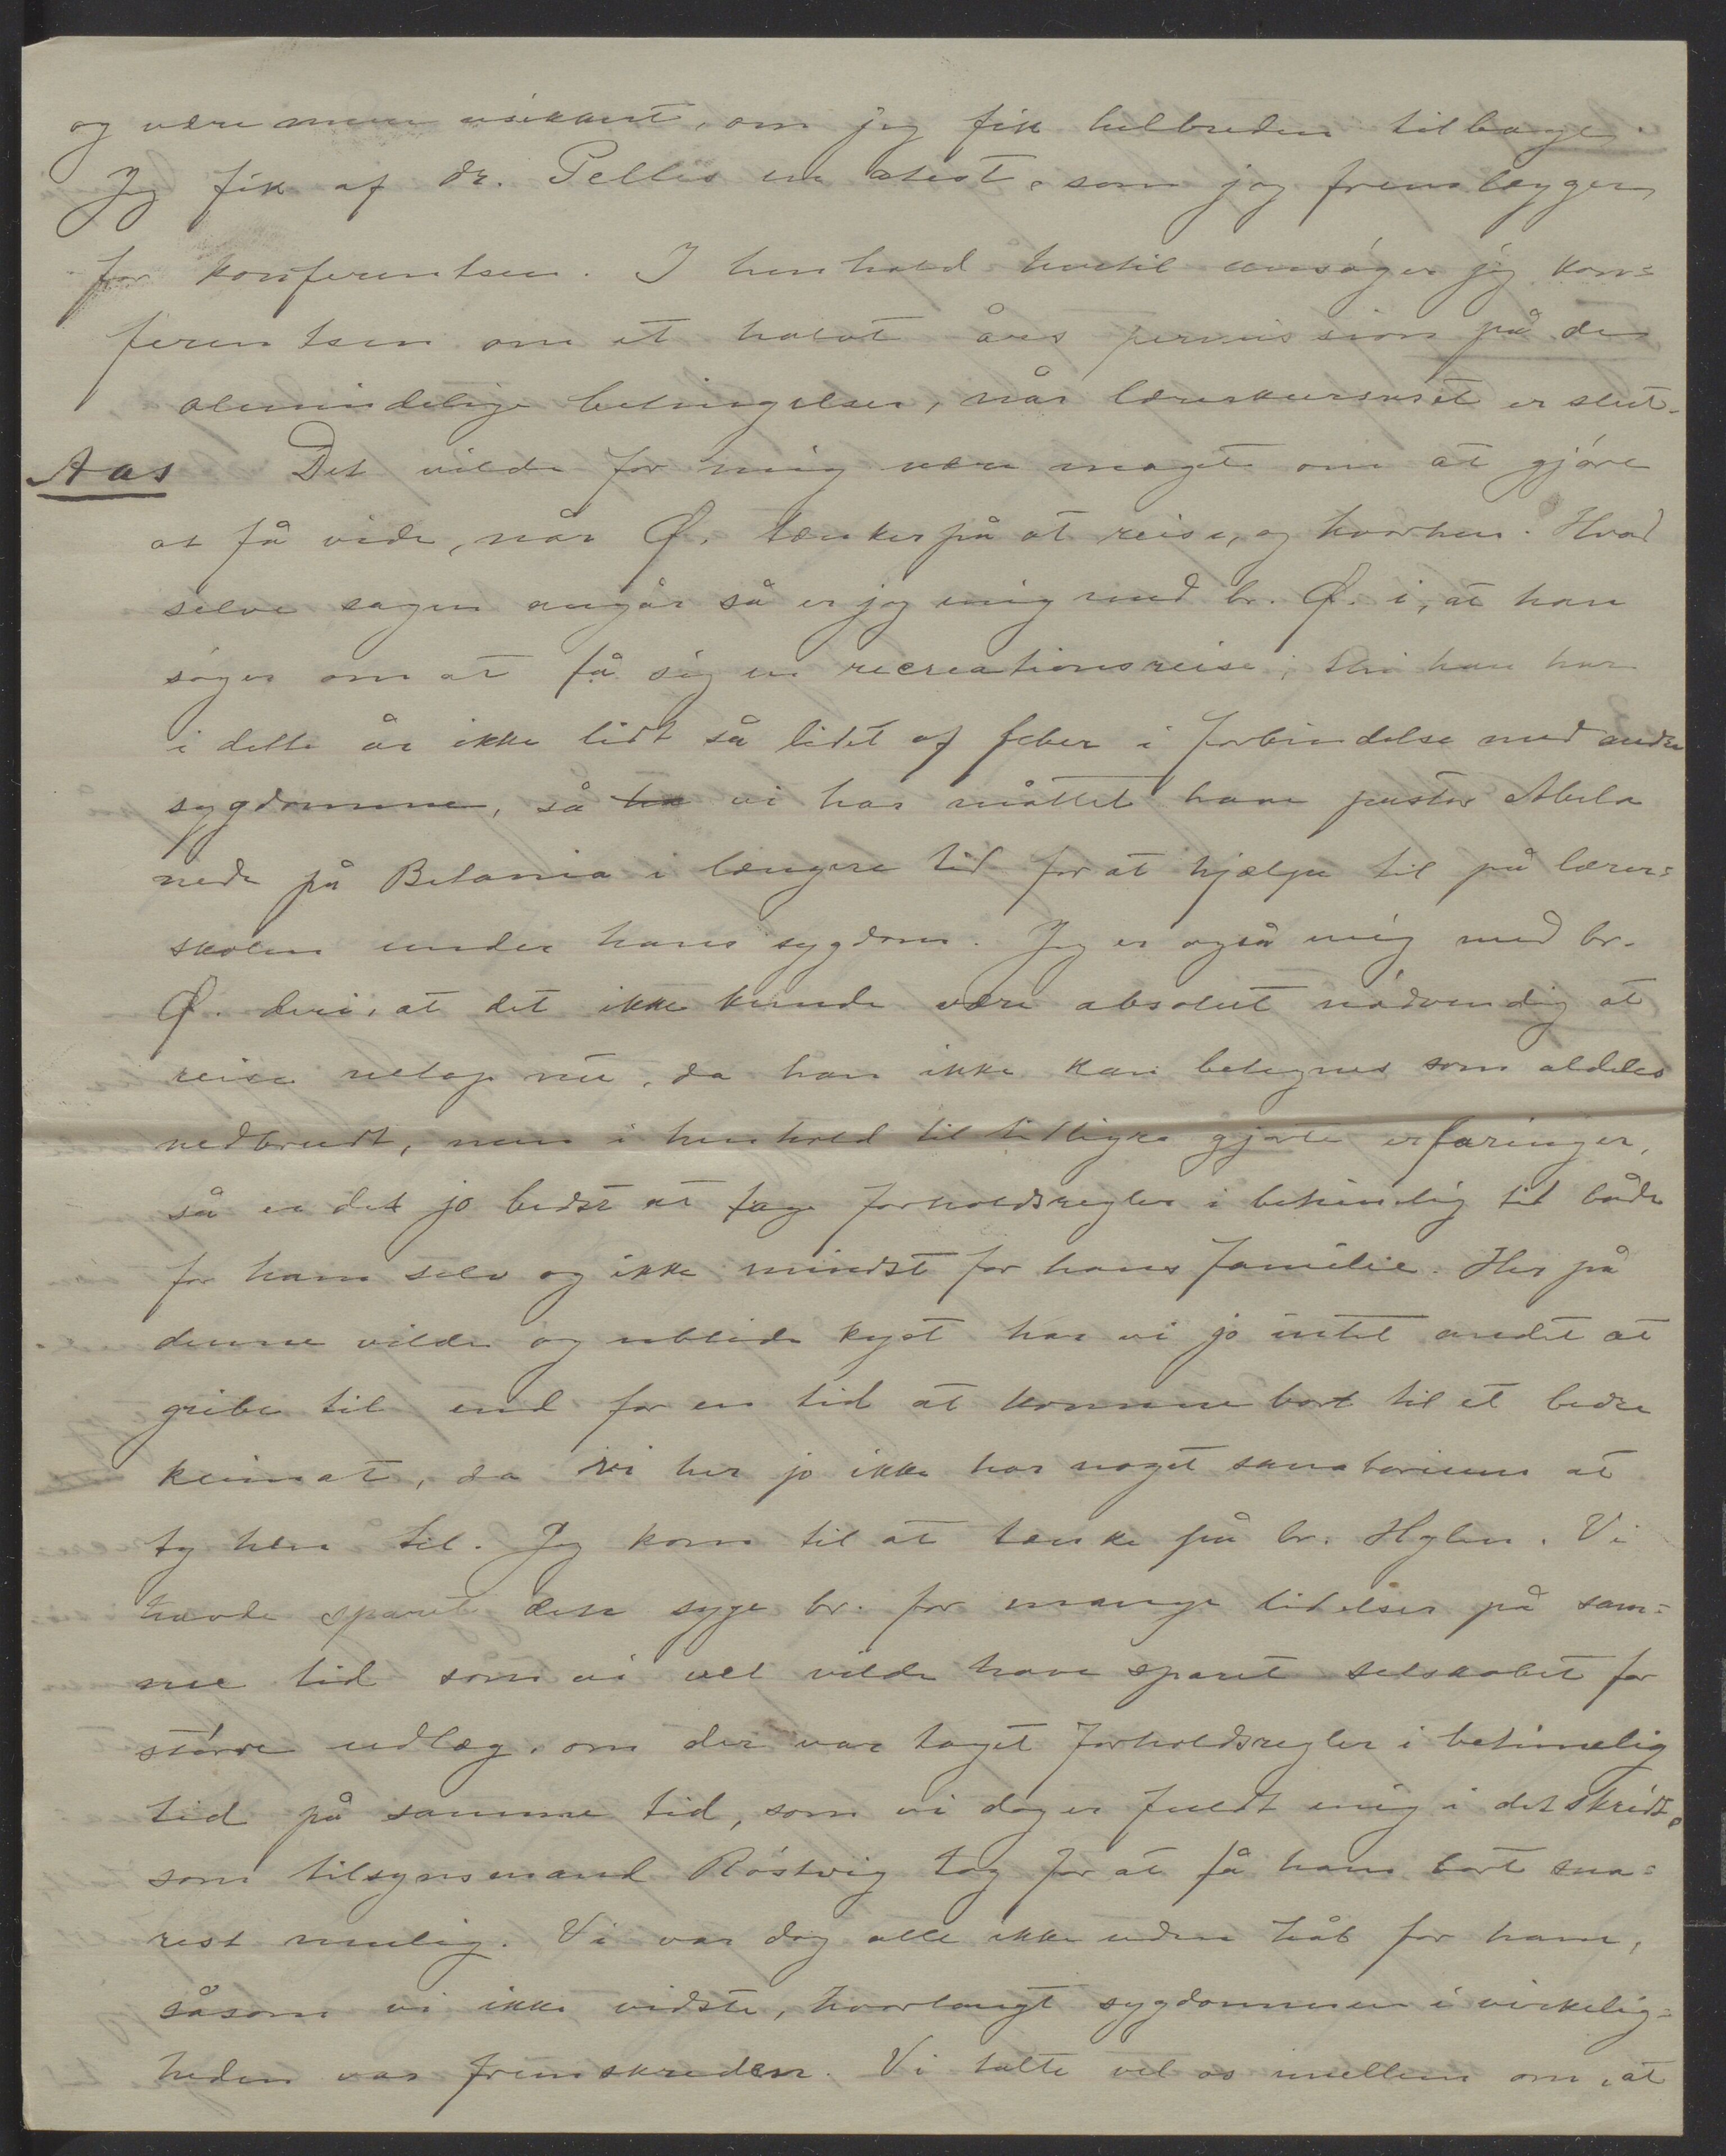 og være mere usikkert, om jeg fik helbreden tilbage.
Jeg fik af dr. Pellis en atest, som jeg fremlægger
for konferentsen. I henhold hertil ansøger jeg kon=
ferentsen om et halvt års permission på de
almindelige betingelser, når lærerkursuset er slut.
Aas Det vilde for mig være meget om at gjøre
at få vide, når Ø. tænker på at reise, og hvorhen. Hvad
selve sagen angår så er jeg enig med br. Ø. i, at han
søger om at få sig en recreationsreise; thi han har
i dette år ikke lidt så lidet af feber i forbindelse med andre
sygdomme, så ha vi har måttet have pastor Abela
nede på Betania i længere tid for at hjælpe til på lærer=
skolen under hans sygdom. Jeg er også enig med br.
Ø. deri, at det ikke kunde være absolut nødvendig at
reise netop nu, da han ikke kan betegnes som aldeles
nedbrudt, men i henhold til tidligre gjorte erfaringer,
så er det jo bedst at tage forholdsregler i betimelig tid både
for ham selv og ikke mindst for hans familie. Her på
denne vilde og ublide kyst har vi jo intet andet at
gribe til end for en tid at komme bort til et bedre
kliimat, da vi her jo ikke har noget sanatorium at
ty hen til. Jeg kom til at tænke på br. Hylen. Vi
havde sparet den syge br. for mange lidelser på sam=
me tid som vi vel vilde have sparet selskabet for
større udlæg, om der var taget forholdsregler i betimelig
tid på samme tid, som vi dog er fuldt enig i det skridt,
som tilsynsmand Röstvig tog for at få ham bort sna=
rest mulig. Vi var dog alle ikke uden håb for ham,
såsom vi ikke vidste, hvorlangt sygdommen i virkelig=
heden var fremskreden. Vi talte vel os imellem om, at